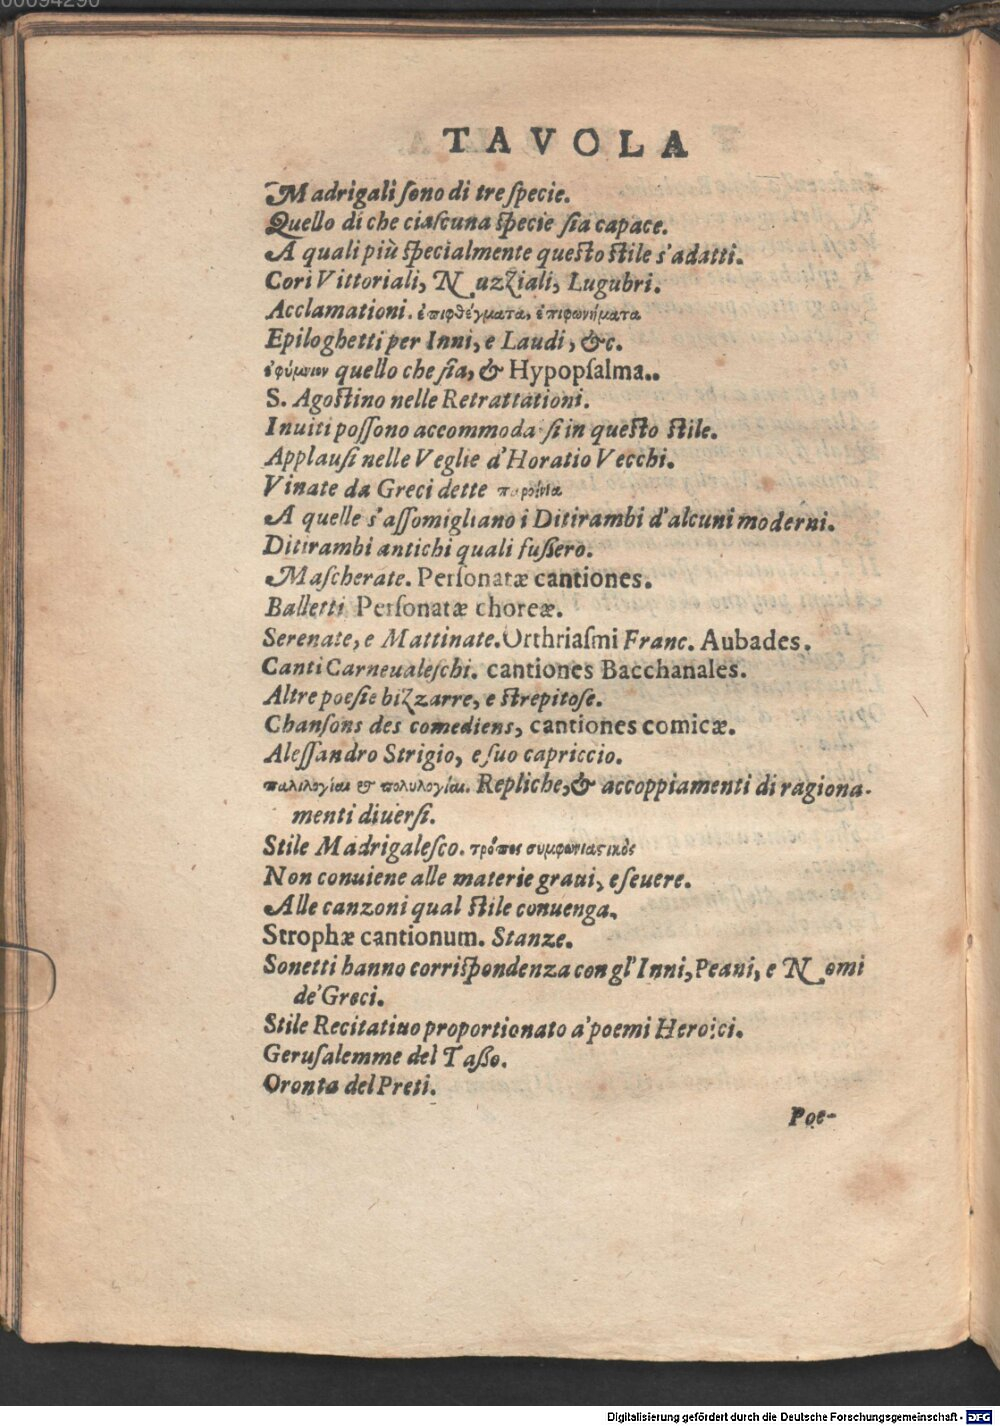 00094290
TAVOLA
Madrigali sono di tre specie.
Quello di che ciascuna specie sia capace.
A quali più specialmente questo stile s'adatti.
Cori Vittoriali, Nuzziali, Lugubri.
Acclamationi. ἐπιφθέγματα, ἐπιφωνήματα
Epiloghetti per Inni, e Laudi, &c.
ἐφύμνιον quello che sia, & Hypopsalma..
S. Agostino nelle Retrattationi.
Inuiti possono accommoda si in questo stile.
Applausi nelle Veglie d'Horatio Vecchi.
Vinate da Greci dette παροίνια
A quelle s'assomigliano i Ditirambi d'alcuni moderni.
Ditirambi antichi quali fussero.
Mascherate. Personatæ cantiones.
Balletti Personatæ choreæ.
Serenate, e Mattinate. Orthriasmi Franc. Aubades.
Canti Carneualeschi. cantiones Bacchanales.
Altre poesie bizzarre, e strepitose.
Chansons des comediens, cantiones comicæ.
Alessandro Strigio, e suo capriccio.
παλιλογίαι & πολυλογίαι. Repliche, & accoppiamenti di ragiona-
menti diuersi.
Stile Madrigalesco. τρόπος συμφωνιαςικὸς
Non conuiene alle materie graui, e seuere.
Alle canzoni qual stile conuenga.
Strophæ cantionum. Stanze.
Sonetti hanno corrispondenza con gl'Inni, Peani, e Nomi
de' Greci.
Stile Recitatiuo proportionato a' poemi Heroici.
Gerusalemme del Tasso.
Oronta del Preti.
Poe-
Digitalisierung gefördert durch die Deutsche Forschungsgemeinschaft - DFG